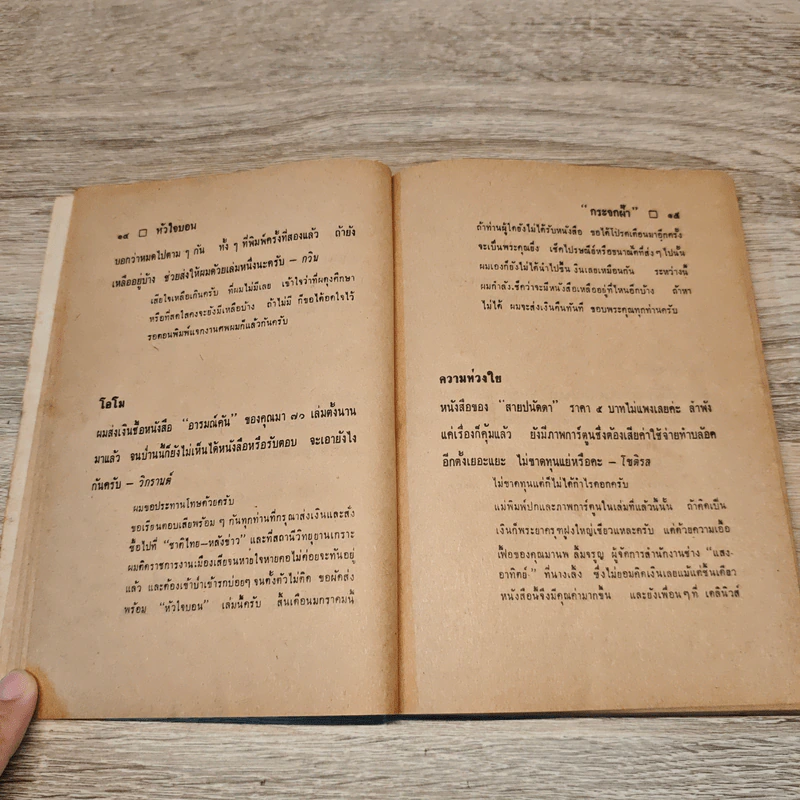 ๑๔ □ หัวใจบอน
บอกว่าหมดไปตาม ๆ กัน ทั้ง ๆ ที่พิมพ์ครั้งที่สองแล้ว ถ้ายัง
เหลืออยู่บ้าง ช่วยส่งให้ผมด้วยเล่มหนึ่งนะครับ – กวิน
เสียใจเหลือเกินครับ ที่ผมไม่มีเลย เข้าใจว่าที่ผดุงศึกษา
หรือที่สดใสคงจะยังมีเหลือบ้าง ถ้าไม่มี ก็ขอได้อดใจไว้
รอตอนพิมพ์แจกงานศพผมก็แล้วกันครับ
โอโม
ผมส่งเงินซื้อหนังสือ “อารมณ์คัน” ของคุณมา ๗๑ เล่มตั้งนาน
มาแล้ว จนป่านนี้ก็ยังไม่เห็นได้หนังสือหรือรับตอบ จะเอายังไง
กันครับ – วิกรานต์
ผมขอประทานโทษด้วยครับ
ขอเรียนตอบเสียพร้อม ๆ กันทุกท่านที่กรุณาส่งเงินและสั่ง
ซื้อไปที่ “ชาติไทย–หลังข่าว” และที่สถานีวิทยุยานเกราะ
ผมติดราชการงานเมืองเสียจนหายใจหายคอไม่ค่อยจะทันอยู่
แล้ว และต้องเข้าป่าเข้ารกบ่อยๆ จนตั้งตัวไม่ติด ขอผัดส่ง
พร้อม “หัวใจบอน” เล่มนี้ครับ สิ้นเดือนมกราคมนี้
“กระจกฝ้า” □ ๑๕
ถ้าท่านผู้ใดยังไม่ได้รับหนังสือ ขอได้โปรดเตือนมาอีกครั้ง
จะเป็นพระคุณยิ่ง เช็คไปรษณีย์หรือธนาณัติที่ส่งๆไปนั้น
ผมเองก็ยังไม่ได้นำไปขึ้นเงินเลยเหมือนกัน ระหว่างนี้
ผมกำลังเช็คว่าจะมีหนังสือเหลืออยู่ที่ไหนอีกบ้าง ถ้าหา
ไม่ได้ ผมจะส่งเงินคืนทันที ขอบพระคุณทุกท่านครับ
ความห่วงใย
หนังสือของ “สายปนัดดา” ราคา ๕ บาทไม่แพงเลยค่ะ ลำพัง
แค่เรื่องก็คุ้มแล้ว ยังมีภาพการ์ตูนซึ่งต้องเสียค่าใช้จ่ายทำบล๊อค
อีกตั้งเยอะแยะ ไม่ขาดทุนแย่หรือคะ – โชติรส
ไม่ขาดทุนแต่ก็ไม่ได้กำไรดอกครับ
แม่พิมพ์ปกและภาพการ์ตูนในเล่มที่แล้วนี้นั้น ถ้าคิดเป็น
เงินก็พระยาครุฑฝูงใหญ่เชียวแหละครับ แต่ด้วยความเอื้อ
เฟื้อของคุณมานพ ลิ้มจรูญ ผู้จัดการสำนักงานช่าง “แสง-
อาทิตย์” ที่นางเลิ้ง ซึ่งไม่ยอมคิดเงินเลยแม้แต่ชิ้นเดียว
หนังสือนี้จึงมีคุณค่ามากขึ้น และยังเพื่อนๆที่ เดลินิวส์